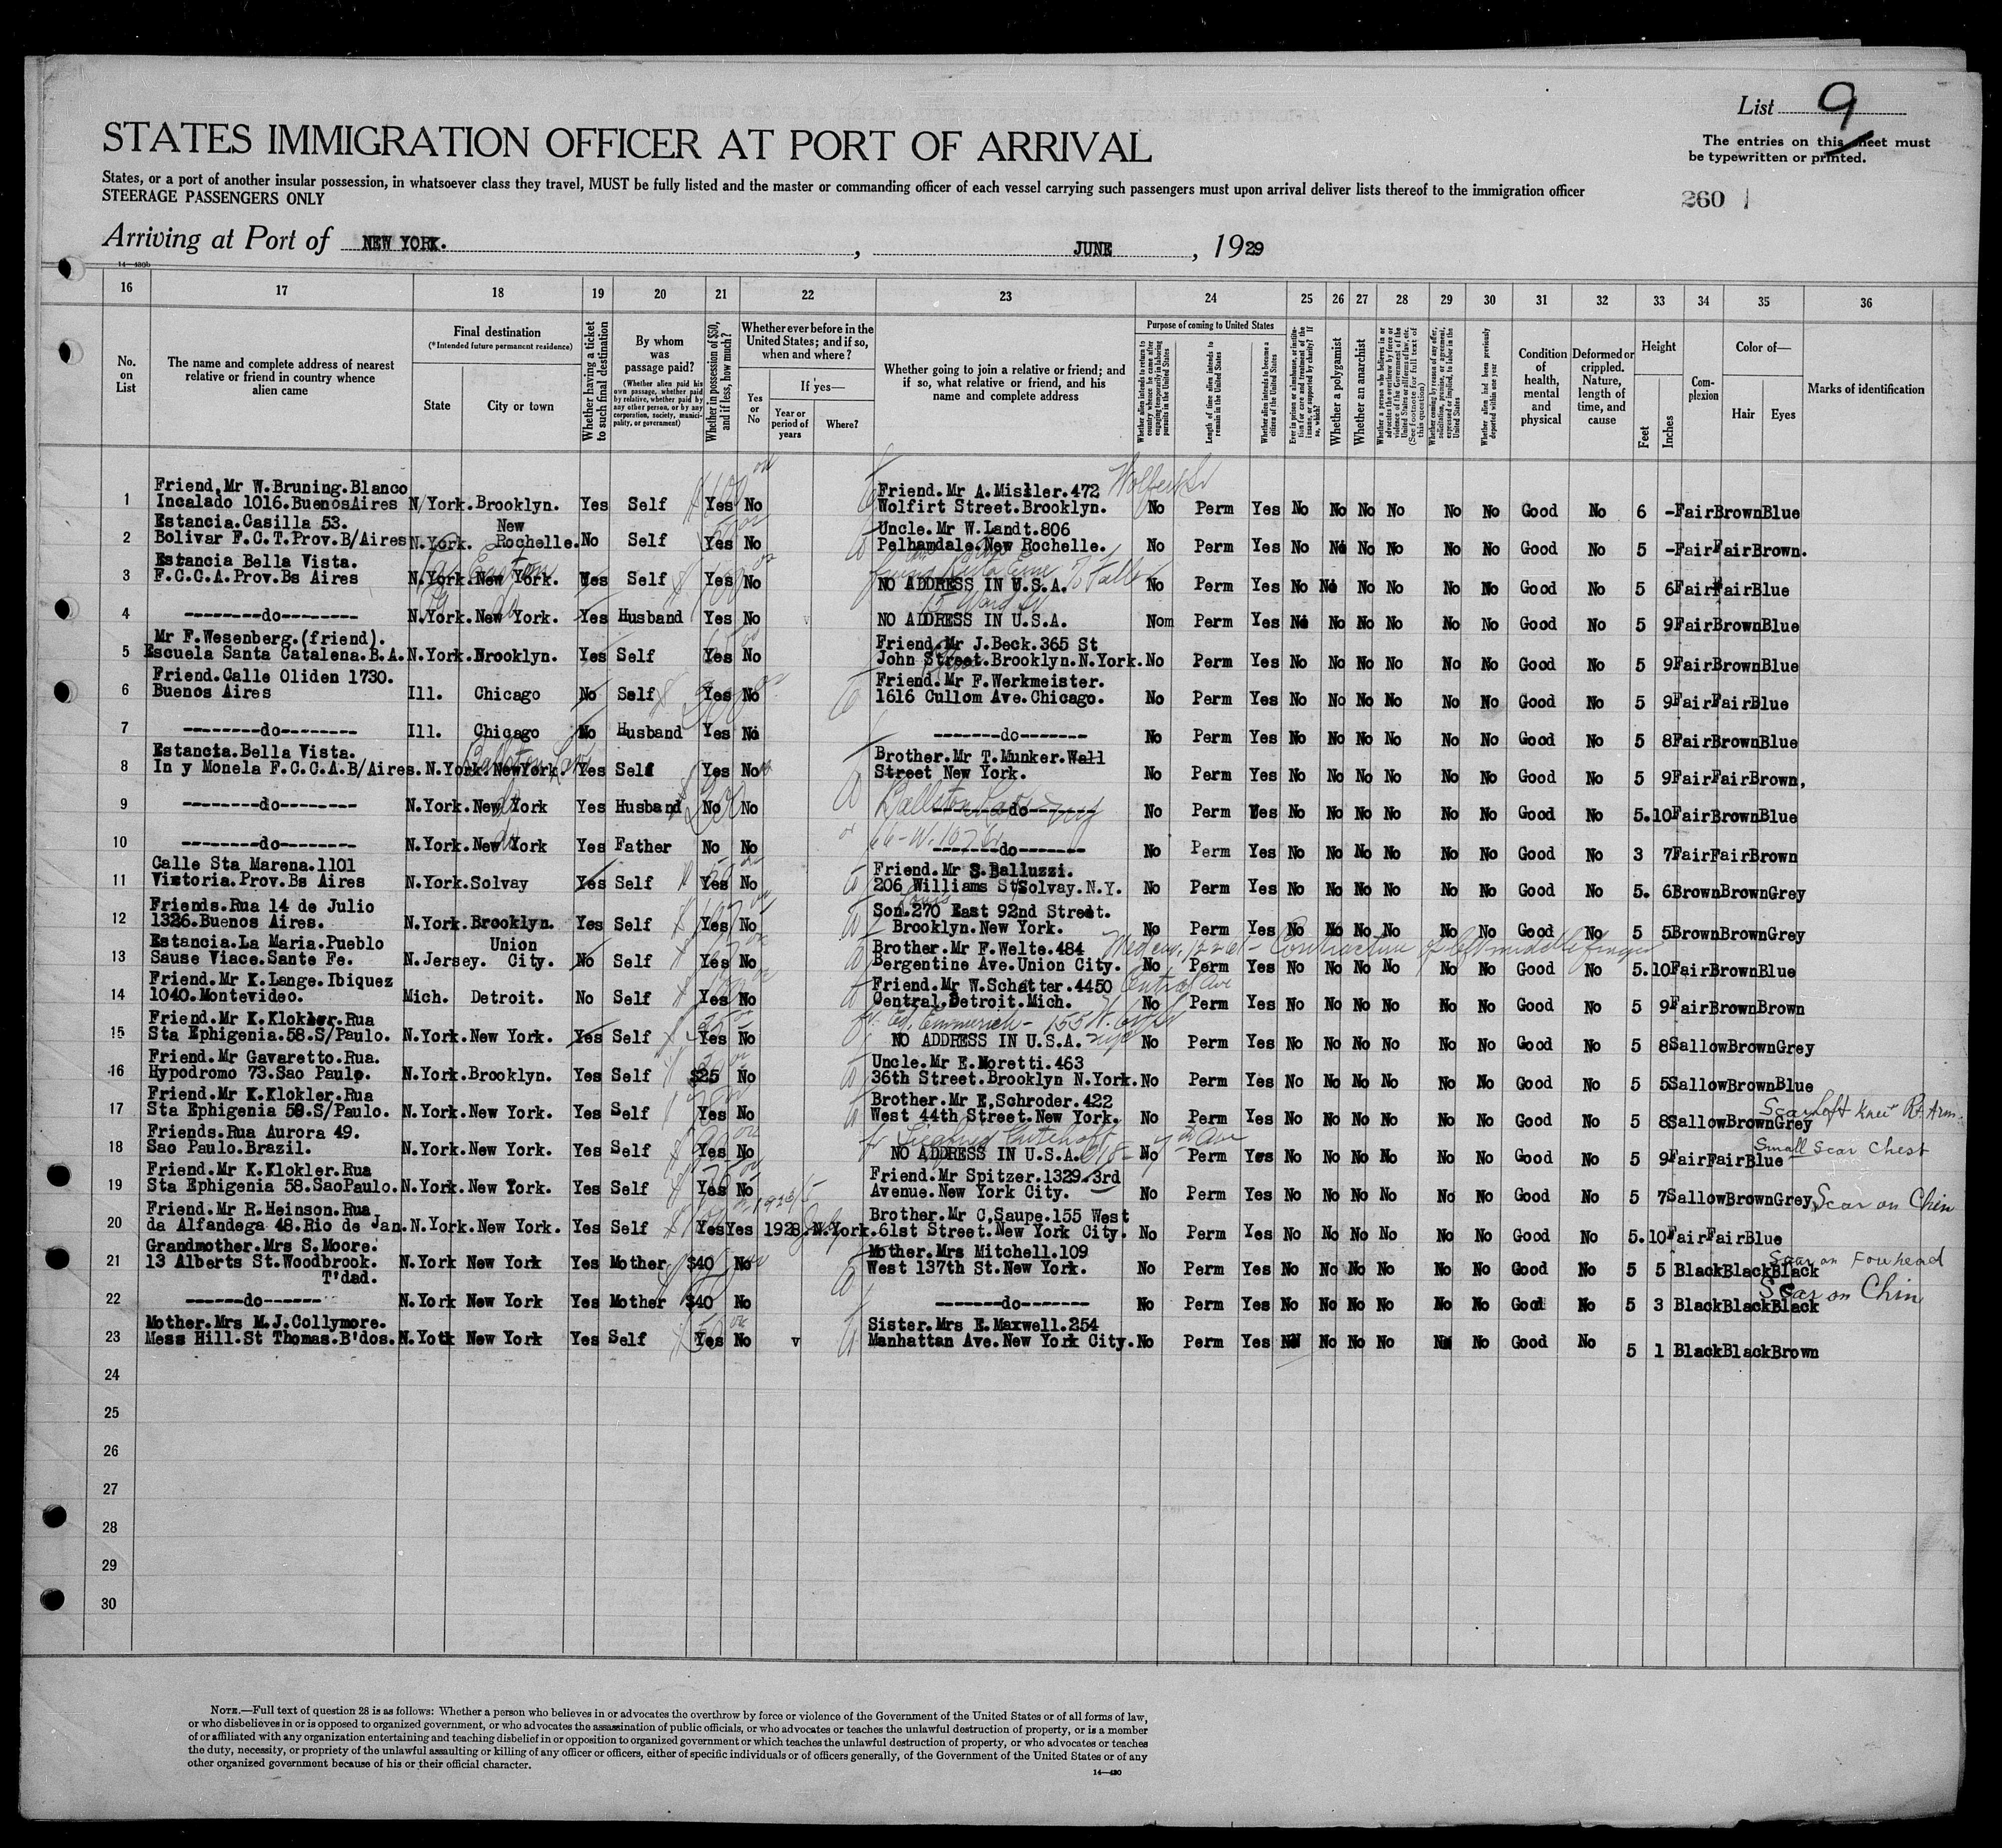 List 9
The entries on this sheet must
be typewritten or printed.
260
STATES IMMIGRATION OFFICER AT PORT OF ARRIVAL
States, or a port of another insular possession, in whatsoever class they travel, MUST be fully listed and the master or commanding officer of each vessel carrying such passengers must upon arrival deliver lists thereof to the immigration officer
STEERAGE PASSENGERS ONLY
Arriving at Port of NEW YORK. , JUNE , 1929
14—430b
16 17 18 19 20 21 22 23 24 25 26 27 28 29 30 31 32 33 34 35 36
No. on List
The name and complete address of nearest relative or friend in country whence alien came
Final destination (*Intended future permanent residence)
State
City or town
Whether having a ticket to such final destination
By whom was passage paid? (Whether alien paid his own passage, whether paid by relative, whether paid by any other person, or by any corporation, society, municipality, or government)
Whether in possession of $50, and if less, how much?
Whether ever before in the United States; and if so, when and where?
Yes or No
If yes—
Year or period of years
Where?
Whether going to join a relative or friend; and if so, what relative or friend, and his name and complete address
Purpose of coming to United States
Whether alien intends to return to country whence he came after engaging temporarily in laboring pursuits in the United States
Length of time alien intends to remain in the United States
Whether alien intends to become a citizen of the United States
Ever in prison or almshouse, or institution for care and treatment of the insane, or supported by charity? If so, which?
Whether a polygamist
Whether an anarchist
Whether a person who believes in or advocates the overthrow by force or violence of the Government of the United States or all forms of law, etc. (See footnote for full text of this question)
Whether coming by reason of any offer, solicitation, promise, or agreement, expressed or implied, to labor in the United States
Whether alien had been previously deported within one year
Condition of health, mental and physical
Deformed or crippled. Nature, length of time, and cause
Height
Feet
Inches
Complexion
Color of—
Hair
Eyes
Marks of identification
1 Friend.Mr W.Bruning.Blanco
Incalado 1016.BuenosAires N/York. Brooklyn. Yes Self Yes No Friend.Mr A.Misller.472
Wolfirt Street.Brooklyn. No Perm Yes No No No No No No Good No 6 - Fair Brown Blue
2 Estancia.Casilla 53.
Bolivar F.C.T.Prov.B/Aires N.York. New Rochelle. No Self Yes No Uncle.Mr W.Landt.806
Pelhamdale.New Rochelle. No Perm Yes No No No No No No Good No 5 - Fair Fair Brown.
3 Estancia Bella Vista.
F.C.C.A.Prov.Bs Aires N.York. New York. Yes Self Yes No NO ADDRESS IN U.S.A. No Perm Yes No No No No No No Good No 5 6 Fair Fair Blue
4 --------do-------- N.York. New York. Yes Husband Yes No NO ADDRESS IN U.S.A. Nom Perm Yes No No No No No No Good No 5 9 Fair Brown Blue
5 Mr F.Wesenberg.(friend).
Escuela Santa Catalena.B.A. N.York. Brooklyn. Yes Self Yes No Friend.Mr J.Beck.365 St
John Street.Brooklyn.N.York. No Perm Yes No No No No No No Good No 5 9 Fair Brown Blue
6 Friend.Calle Oliden 1730.
Buenos Aires Ill. Chicago No Self Yes No Friend.Mr F.Werkmeister.
1616 Cullom Ave.Chicago. No Perm Yes No No No No No No Good No 5 9 Fair Fair Blue
7 --------do-------- Ill. Chicago No Husband Yes No -------do------- No Perm Yes No No No No No No Good No 5 8 Fair Brown Blue
8 Estancia.Bella Vista.
In y Monela F.C.C.A.B/Aires. N.York. NewYork. Yes Self Yes No Brother.Mr T.Munker.Wall
Street New York. No Perm Yes No No No No No No Good No 5 9 Fair Fair Brown,
9 --------do-------- N.York. New York Yes Husband No No -------do------- No Perm Yes No No No No No No Good No 5. 10 Fair Brown Blue
10 --------do-------- N.York. New York Yes Father No No -------do------- No Perm Yes No No No No No No Good No 3 7 Fair Fair Brown
11 Calle Sta Marena.1101
Victoria.Prov.Bs Aires N.York. Solvay Yes Self Yes No Friend.Mr S.Balluzzi.
206 Williams St Solvay.N.Y. No Perm Yes No No No No No No Good No 5. 6 Brown Brown Grey
12 Friends.Rua 14 de Julio
1326.Buenos Aires. N.York. Brooklyn. Yes Self Yes No Son.270 East 92nd Street.
Brooklyn.New York. No Perm Yes No No No No No No Good No 5 5 Brown Brown Grey
13 Estancia.La Maria.Pueblo
Sause Viace.Sante Fe. N.Jersey. Union City. No Self Yes No Brother.Mr F.Welte.484
Bergentine Ave.Union City. No Perm Yes No No No No No No Good No 5. 10 Fair Brown Blue
Contracture of left middle finger
14 Friend.Mr K.Lange.Ibiquez
1040.Montevideo. Mich. Detroit. No Self Yes No Friend.Mr W.Schatter.4450
Central.Detroit.Mich. Central Ave No Perm Yes No No No No No No Good No 5 9 Fair Brown Brown
15 Friend.Mr K.Klokler.Rua
Sta Ephigenia.58.S/Paulo. N.York. New York. Yes Self Yes No NO ADDRESS IN U.S.A. No Perm Yes No No No No No No Good No 5 8 Sallow Brown Grey
16 Friend.Mr Gavaretto.Rua.
Hypodromo 73.Sao Paulo. N.York. Brooklyn. Yes Self $25 No Uncle.Mr E.Moretti.463
36th Street.Brooklyn N.York. No Perm Yes No No No No No No Good No 5 5 Sallow Brown Blue
17 Friend.Mr K.Klokler.Rua
Sta Ephigenia 58.S/Paulo. N.York. New York. Yes Self Yes No Brother.Mr E,Schroder.422
West 44th Street.New York. No Perm Yes No No No No No No Good No 5 8 Sallow Brown Grey Scar Left Knee Rt Arm.
18 Friends.Rua Aurora 49.
Sao Paulo.Brazil. N.York. New York. Yes Self Yes No NO ADDRESS IN U.S.A. 7th Ave No Perm Yes No No No No No No Good No 5 9 Fair Fair Blue Small Scar Chest
19 Friend.Mr K.Klokler.Rua
Sta Ephigenia 58.SaoPaulo. N.York. New York. Yes Self Yes No Friend.Mr Spitzer.1329.3rd
Avenue.New York City. No Perm Yes No No No No No No Good No 5 7 Sallow Brown Grey Scar on Chin
20 Friend.Mr R.Heinson.Rua
da Alfandega 48.Rio de Jan. N.York. New York. Yes Self Yes Yes 1928. N.York. Brother.Mr C,Saupe.155 West
61st Street.New York City. No Perm Yes No No No No No No Good No 5. 10 Fair Fair Blue
21 Grandmother.Mrs S.Moore.
13 Alberts St.Woodbrook.
T'dad. N.York New York Yes Mother $40 No Mother.Mrs Mitchell.109
West 137th St.New York. No Perm Yes No No No No No No Good No 5 5 Black Black Black Scar on Forehead
22 ------do------ N.York New York Yes Mother $40 No -------do------- No Perm Yes No No No No No No Good No 5 3 Black Black Black Scar on Chin
23 Mother.Mrs M.J.Collymore.
Mess Hill.St Thomas.B'dos. N.York New York Yes Self Yes No v Sister.Mrs E.Maxwell.254
Manhattan Ave.New York City. No Perm Yes No No No No No No Good No 5 1 Black Black Brown
24
25
26
27
28
29
30
NOTE.—Full text of question 28 is as follows: Whether a person who believes in or advocates the overthrow by force or violence of the Government of the United States or of all forms of law,
or who disbelieves in or is opposed to organized government, or who advocates the assassination of public officials, or who advocates or teaches the unlawful destruction of property, or is a member
of or affiliated with any organization entertaining and teaching disbelief in or opposition to organized government or which teaches the unlawful destruction of property, or who advocates or teaches
the duty, necessity, or propriety of the unlawful assaulting or killing of any officer or officers, either of specific individuals or of officers generally, of the Government of the United States or of any
other organized government because of his or their official character.
14—430